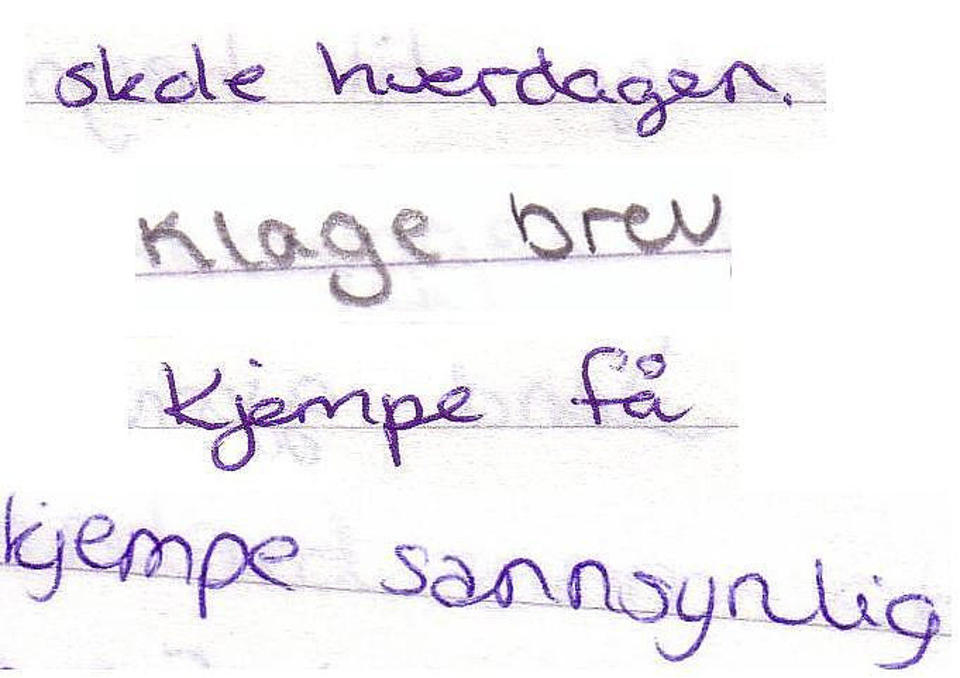 skole hverdagen.
Klage brev
Kjempe få
kjempe sannsynlig